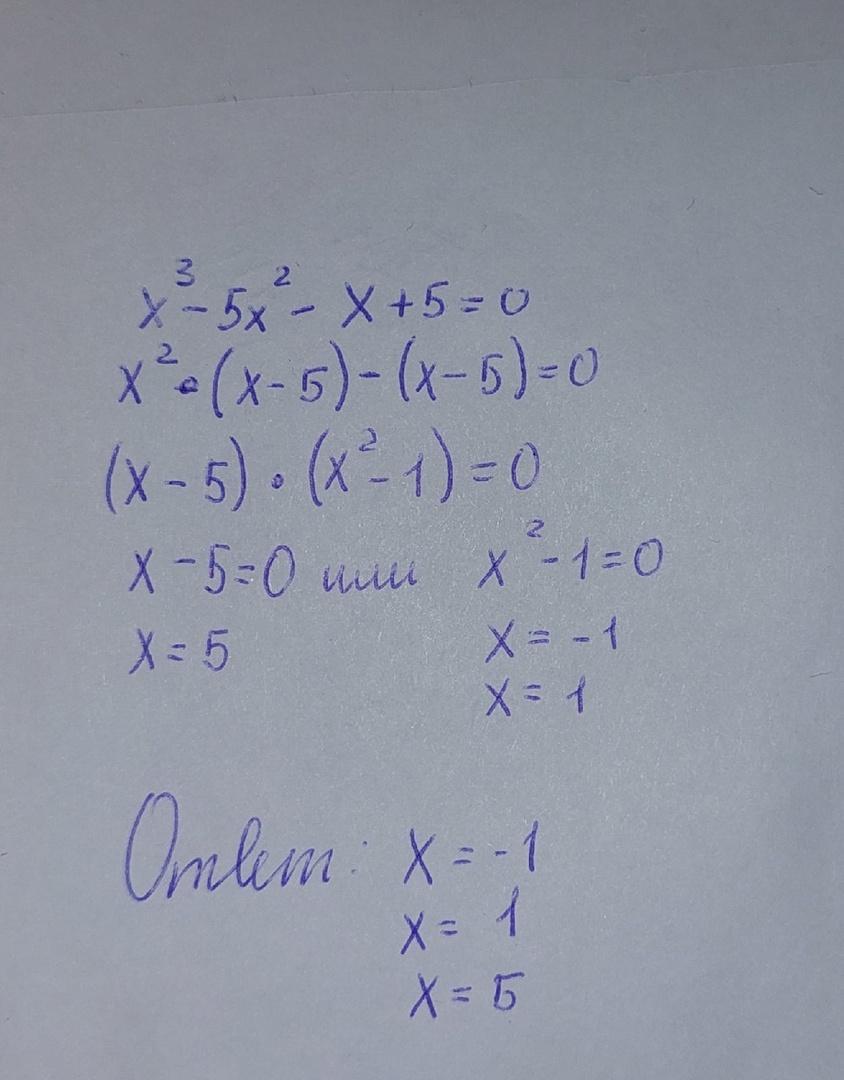 x³ - 5x² - x + 5 = 0
x² · (x - 5) - (x - 5) = 0
(x - 5) · (x² - 1) = 0
x - 5 = 0 или x² - 1 = 0
x = 5 x = -1
x = 1
Ответ: x = -1
x = 1
x = 5